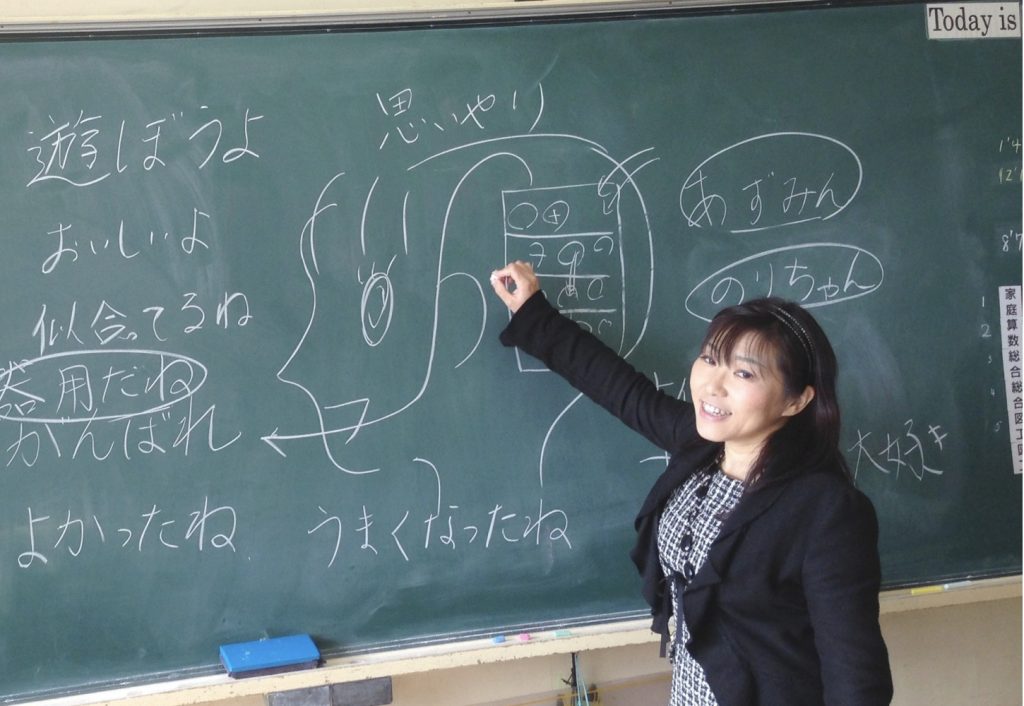 Today is
思いやり
遊ぼうよ
おいしいよ
似合ってるね
器用だね
がんばれ
よかったね
うまくなったね
あずみん
のりちゃん
大好き
1
2
3
4
5
家庭
算数
総合
総合
図工